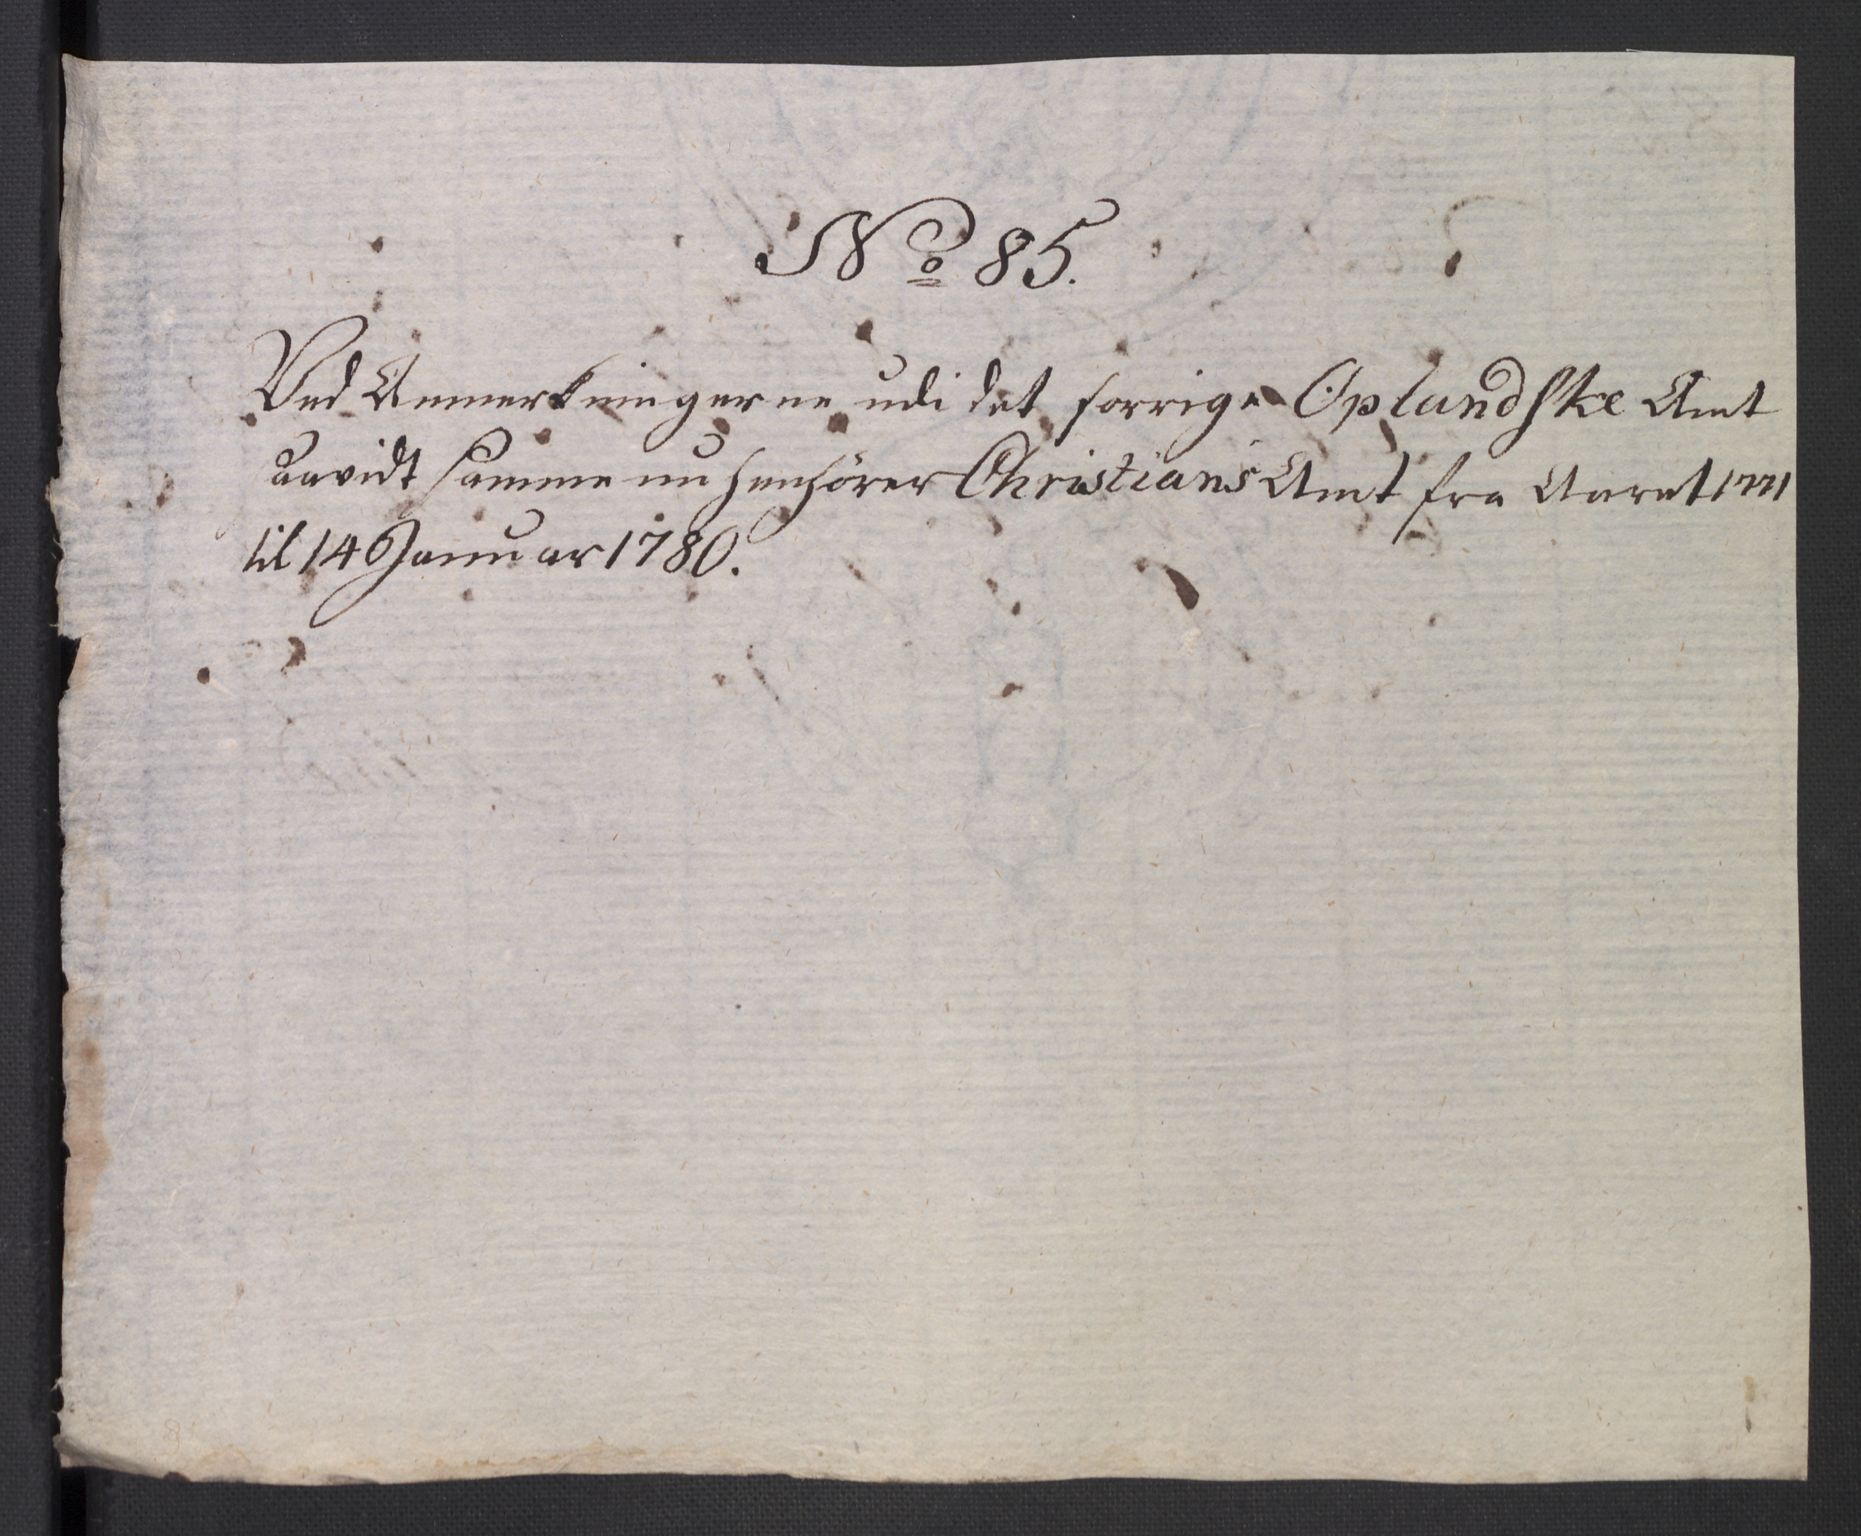 No 85.
Ved Anmerkningerne udi det forrige Oplandske Amt
saavidt samme nu henhörer Christians Amt fra Aaret 1771
til 14 Januar 1780.